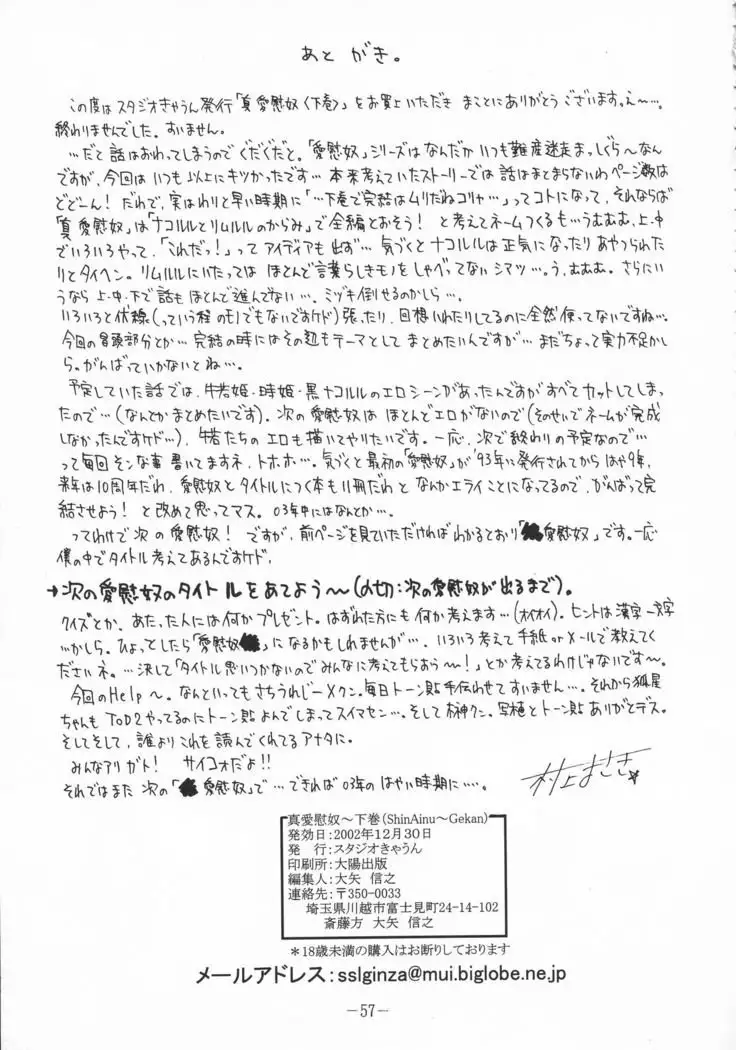 あと がき。
この度はスタジオきゃうん発行「真愛慰奴〈下巻〉」をお買上いただき まことにありがとう ございます。え〜…。
終わりませんでした。すいません。
…だと 話はおわってしまうので ぐだぐだと。「愛慰奴」シリーズは なんだか いつも難産迷走まっしぐら〜なん
ですが、今回は いつも以上に キツかったです… 本来考えていたストーリーでは 話は まとまらないわ ページ数は
どどーん! だわで、実は わりと早い時期に「…下巻で完結はムリだねコリャ…」ってコトになって、それならば
「真愛慰奴」は「ナコルルとリムルルのからみ」で全編とおそう! と考えてネームつくるも…うむむむ、上・中
でいろいろやって、「これだっ!」ってアイディアも出ず… 気づくとナコルルは正気になったり あやつられた
りとタイヘン。リムルルにいたっては ほとんど言葉らしきモノをしゃべってない シマツ…。う、むむむ。さらにい
うなら 上・中・下で話も ほとんど進んでない…。ミヅキ倒せるのかしら…。
いろいろと伏線(っていう程のモノでもないですケド)張ったり、回想いれたりしてるのに全然使ってないですね…。
今回の冒頭部分とか… 完結の時にはその辺もテーマとして まとめたいんですが… まだちょって実力不足かし
ら。がんばっていかないとね…。
予定していた話では、牛若姫・時姫・黒ナコルルのエロシーンがあったんですが すべてカットしてしまっ
たので…(なんとかまとめたいです)。次の愛慰奴は ほとんどエロがないので(そのせいでネームが完成
しなかったんですケド…)、牛若たちの エロも描いてやりたいです。一応、次で終わりの予定なので…
って毎回 そンな事 書いてますネ、トホホ…。気づくと最初の「愛慰奴」が'93年に発行されてから はや9年、
来年は10周年だわ、愛慰奴と タイトルにつく本も11冊だわ と なんかエライことになってるので、がんばって完
結させよう! と改めて思ってマス。03年中にはなんとか…。
ってわけで 次の 愛慰奴! ですが、前ページを見ていただければ わかるとおり「 愛慰奴」です。一応
僕の中でタイトル考えてあるんですケド、
→次の愛慰奴のタイトルをあてよう〜(〆切:次の愛慰奴が出るまで)。
クイズとか、あたった人には何かプレゼント。はずれた方にも何か考えます…(オイオイ)。ヒントは漢字一文字
…かしら。ひょっとしたら「愛慰奴 」になるかもしれませんが…、いろいろ考えて 手紙orメールで教えてく
ださいネ。…決して「タイトル思いつかないのでみんなに考えてもらおう〜!」とか考えてるわけじゃないです〜。
今回のHelp〜。なんといっても さちうれじーXクン。毎日トーン貼手伝わせてすいません…。それから狐星
ちゃんも ToD2やってるのにトーン貼よんでしまってスイマセン…。そして 神クン。写植とトーン貼ありがとデス。
そしてそして、誰よりこれを読んでくれてるアナタに。
みんなアリガト! サイコォだよ!!
それではまた 次の「 愛慰奴」で…できれば 03年の はやい時期に…。
村上まさき
真愛慰奴〜下巻(ShinAinu〜Gekan)
発効日:2002年12月30日
発 行:スタジオきゃうん
印刷所:大陽出版
編集人:大矢 信之
連絡先:〒350-0033
埼玉県川越市富士見町24-14-102
斎藤方 大矢 信之
＊18歳未満の購入はお断りしております
メールアドレス:sslginza@mui.biglobe.ne.jp
－57－